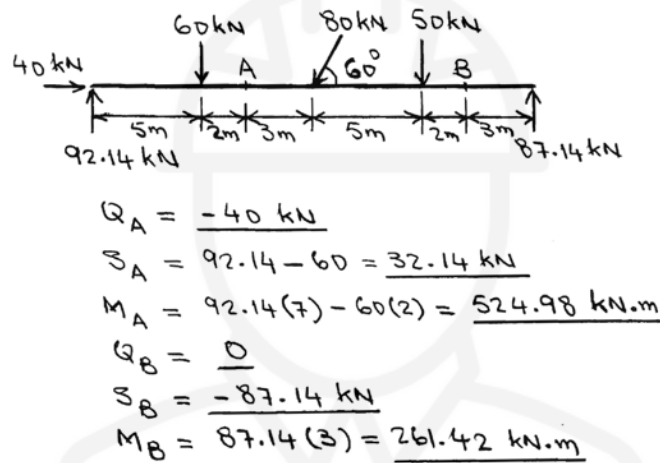 60kN 80kN 50kN
40 kN A 60° B
5m 2m 3m 5m 2m 3m
92.14 kN 87.14 kN
Q_A = -40 kN
S_A = 92.14 - 60 = 32.14 kN
M_A = 92.14(7) - 60(2) = 524.98 kN.m
Q_B = 0
S_B = -87.14 kN
M_B = 87.14(3) = 261.42 kN.m